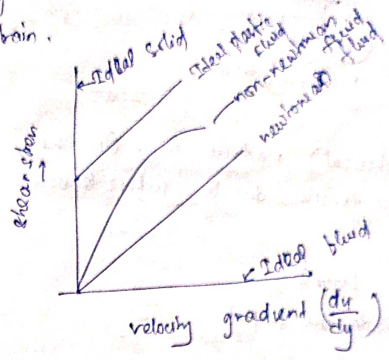 rain.
Ideal solid
Ideal plastic
fluid
non-newtonian
fluid
newtonean
fluid
shear stress
Ideal fluid
velocity gradient (du/dy)